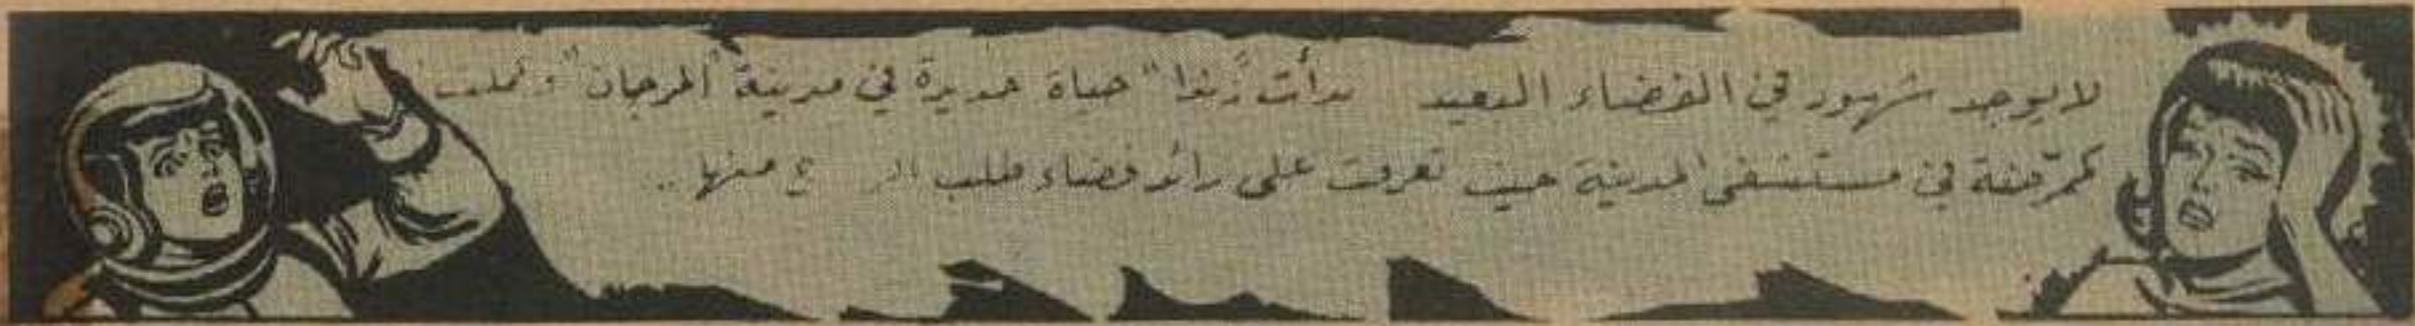 لا يوجد شهود في الفضاء البعيد بدأت "رندا" حياة جديدة في مدينة "المرجان" وعملت
كممرّضة في مستشفى المدينة حيث تعرفت على رائد فضاء طلب منها ..